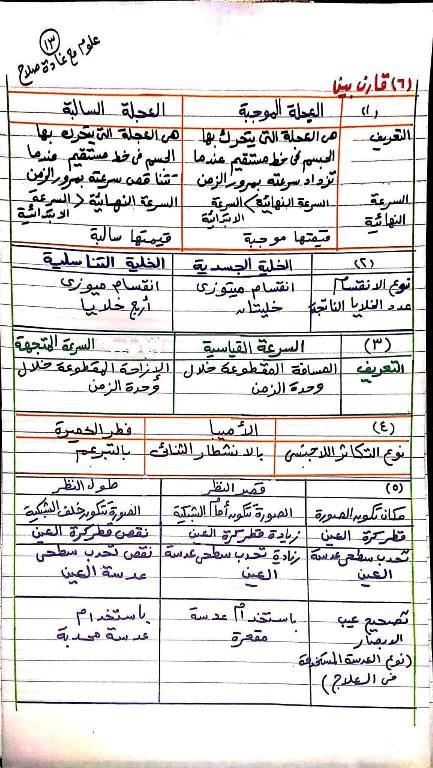 علوم مع غادة صلاح
١٣
(٦) قارن بين:
(١) العجلة الموجبة العجلة السالبة
التعريف هى العجلة التى يتحرك بها هى العجلة التى يتحرك بها
الجسم فى خط مستقيم عندما الجسم فى خط مستقيم عندما
تزداد سرعته بمرور الزمن تتناقص سرعته بمرور الزمن
السرعة السرعة النهائية > السرعة السرعة النهائية < السرعة
النهائية الابتدائية الابتدائية
قيمتها موجبة قيمتها سالبة
(٢) الخلية الجسدية الخلية التناسلية
نوع الانقسام انقسام ميتوزى انقسام ميوزى
عدد الخلايا الناتجة خليتان أربع خلايا
(٣) السرعة القياسية السرعة المتجهة
التعريف المسافة المقطوعة خلال الإزاحة المقطوعة خلال
وحدة الزمن وحدة الزمن
(٤) الأميبا فطر الخميرة
نوع التكاثر اللاجنسى بالانشطار الثنائى بالتبرعم
(٥) قصر النظر طول النظر
مكان تكون الصورة الصورة تتكون أمام الشبكية الصورة تتكون خلف الشبكية
قطر كرة العين زيادة قطر كرة العين نقص قطر كرة العين
تحدب سطحى عدسة زيادة تحدب سطحى عدسة نقص تحدب سطحى
العين العين عدسة العين
تصحيح عيب باستخدام عدسة باستخدام
الابصار مقعرة عدسة محدبة
(نوع العدسة المستخدمة
فى العلاج)